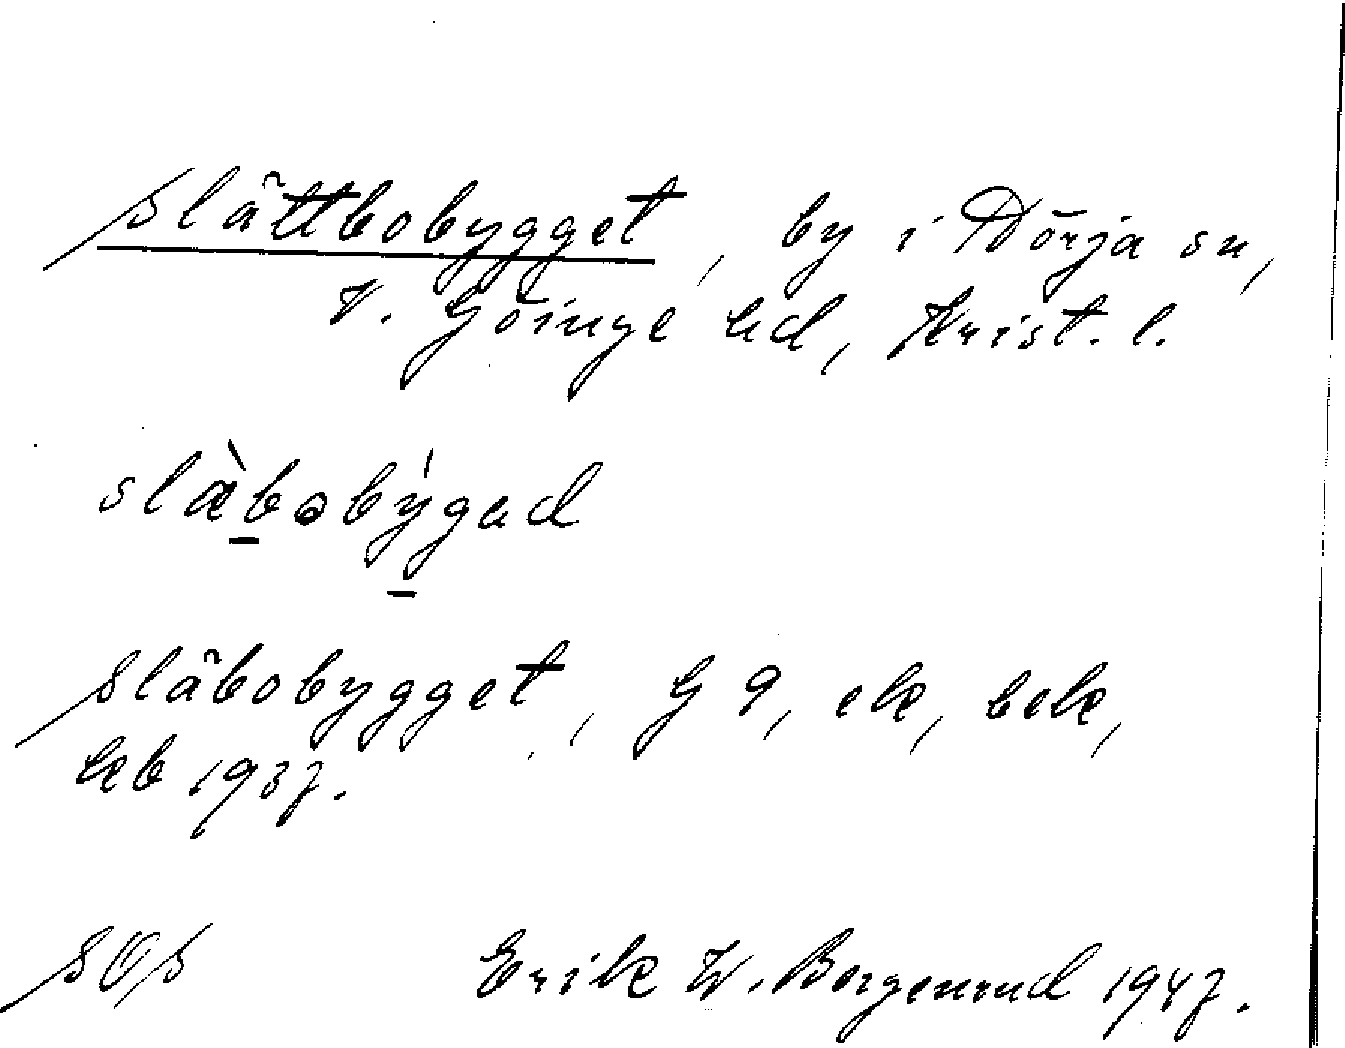 Slättbobygget, by i Dörja sn,
V. Göinge hd, Krist. l.
slæ̀bobýgad
Släbobygget, G 9, ek, bek,
kb 1937.
SOS Erik W. Borgenrud 1947.